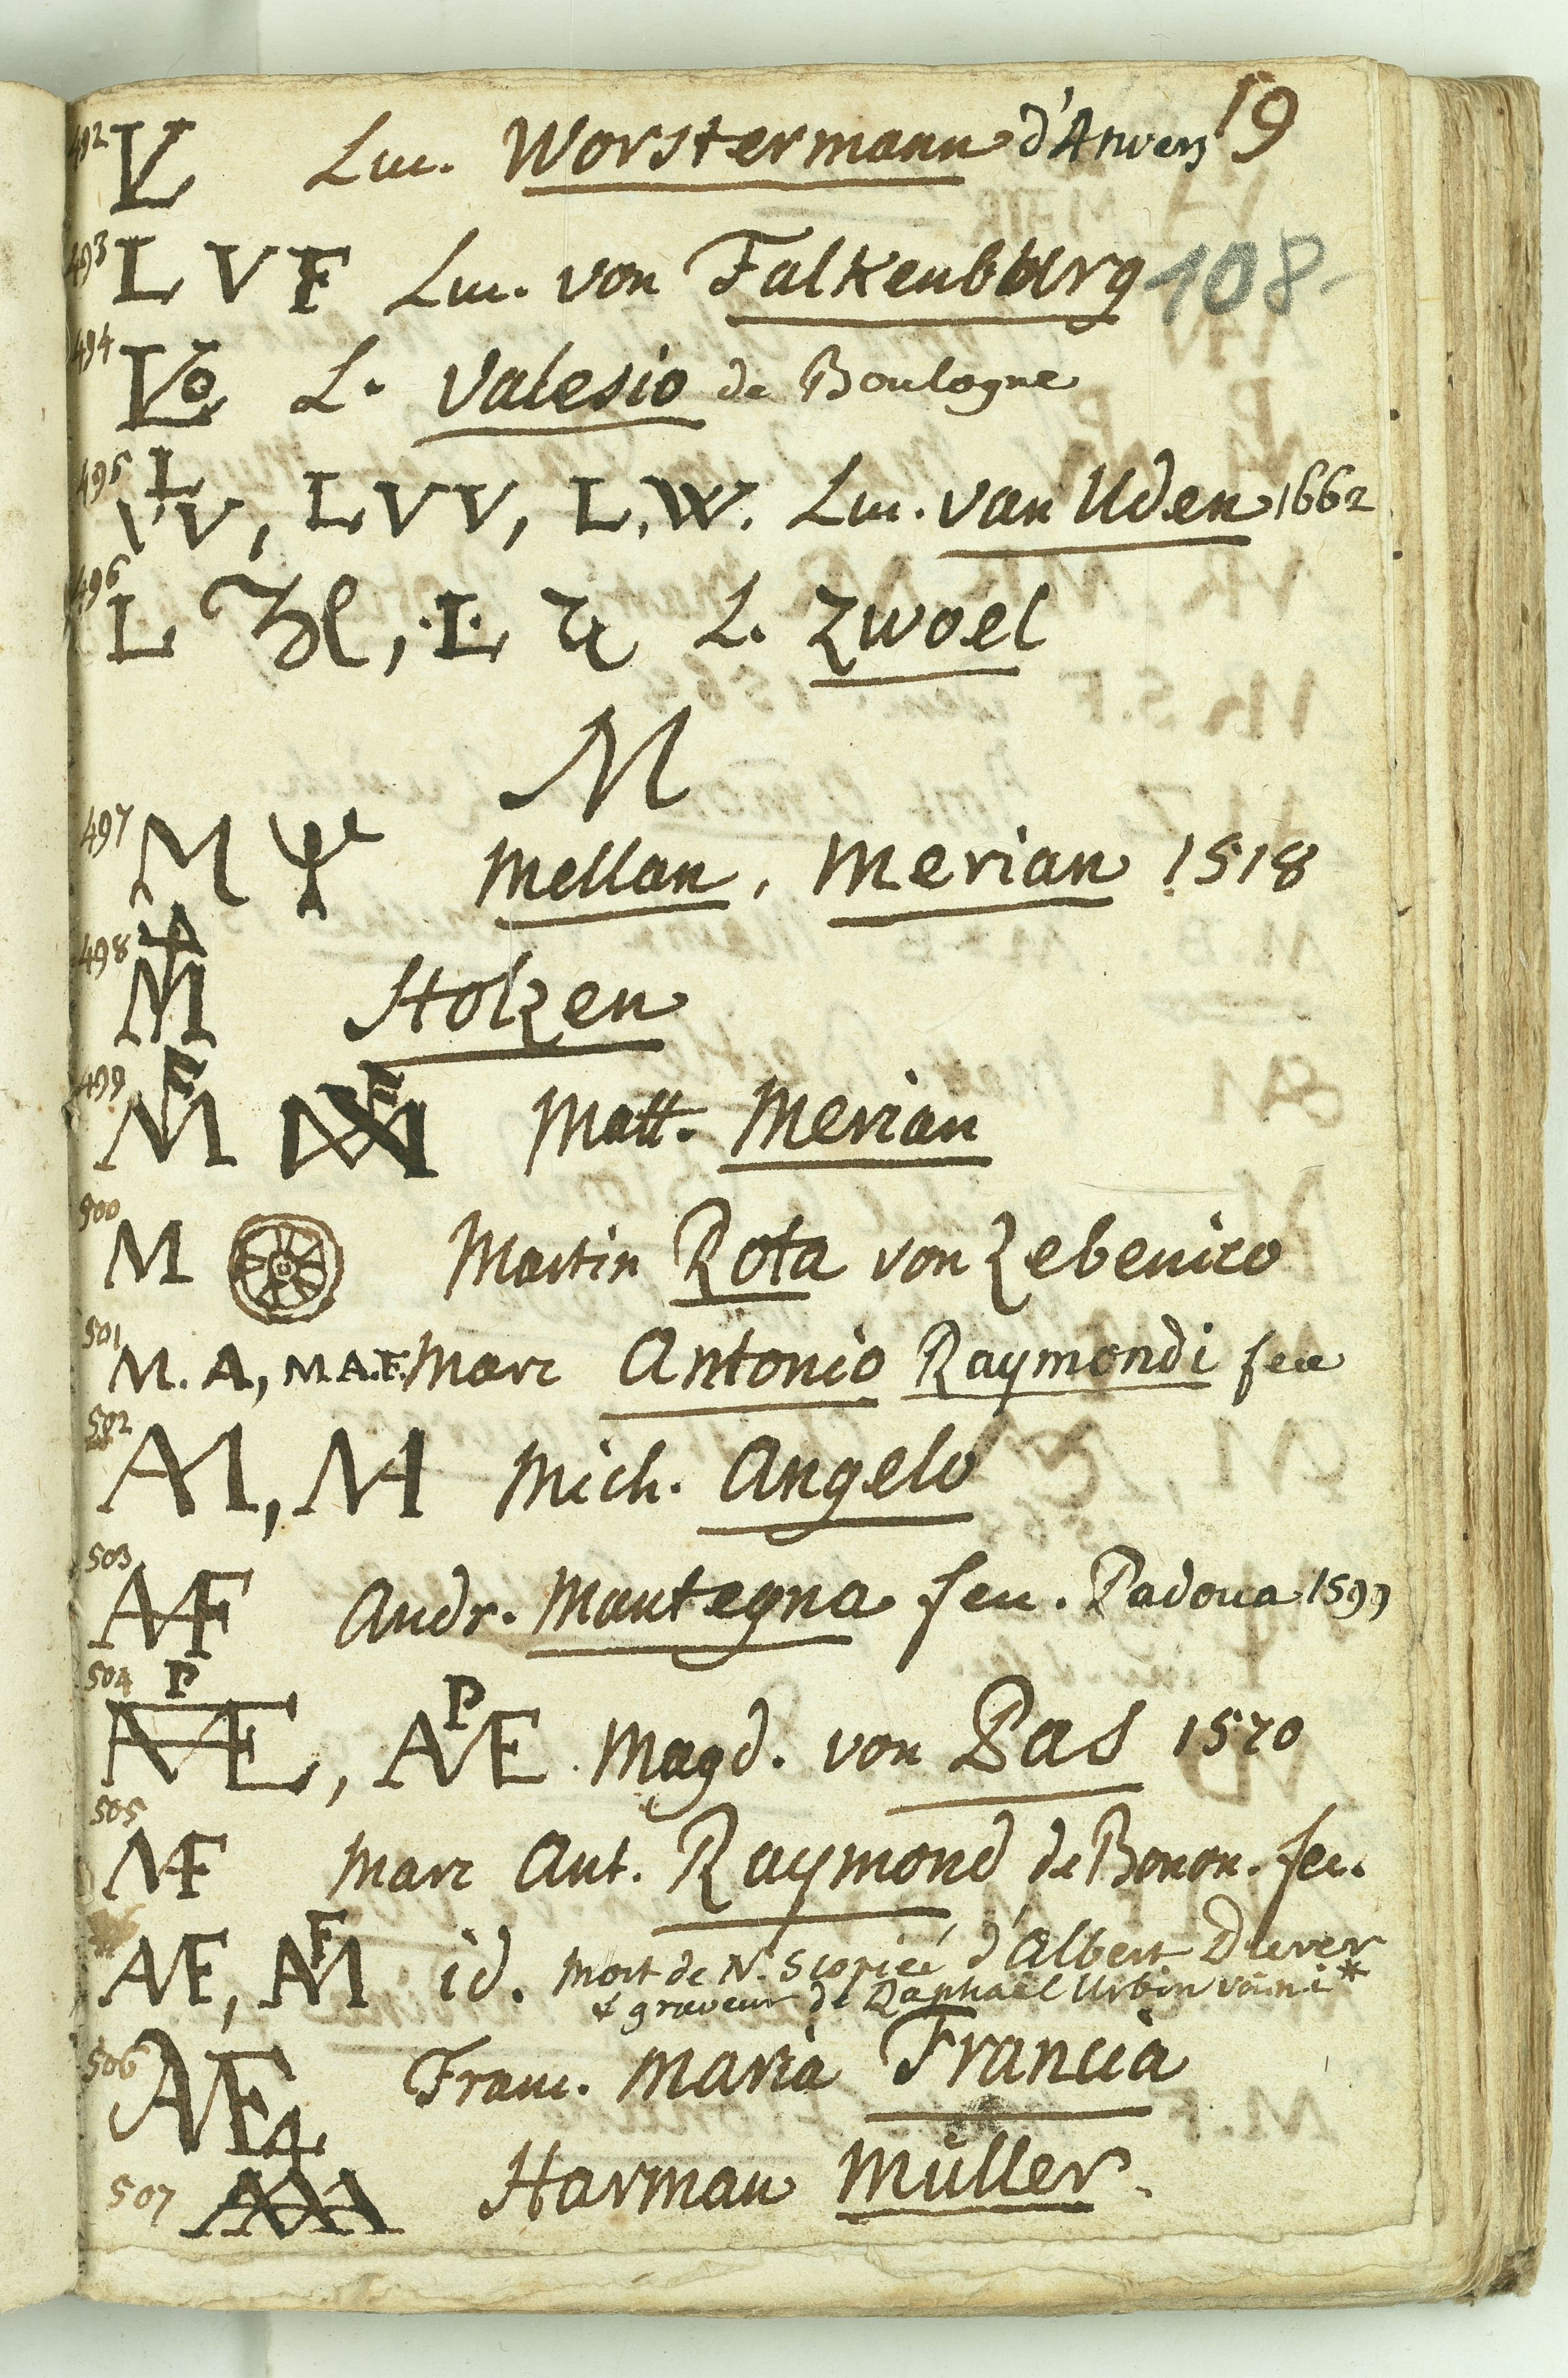 19
492 VL Luc. Worstermann d'Anvers
108
493 L V F Luc. von Falkenburg
494 L. Valesio de Boulogne
495 L VV, LVV, L.W. Luc. van Uden 1662
496 L Zl, .L. L. Zwoel
M
497 M Mellan, Merian 1518
498 Stolzen
499 Matt. Merian
500 M Martin Rota von Zebenico
501 M. A, M.A.F. Marc Antonio Raymondi fec
502 AM, MA Mich. Angelo
503 AMF Andr. Mantegna fec. Padoua 1599
504 P, P Magd. von Pas 1570
505 MF Marc Ant. Raymond de Bonon. fec.
id. mort de N. S copiée d'Albert Durer
& graveur de Raphael Urbin
506 Franc. Maria Francia
507 Harman Müller.